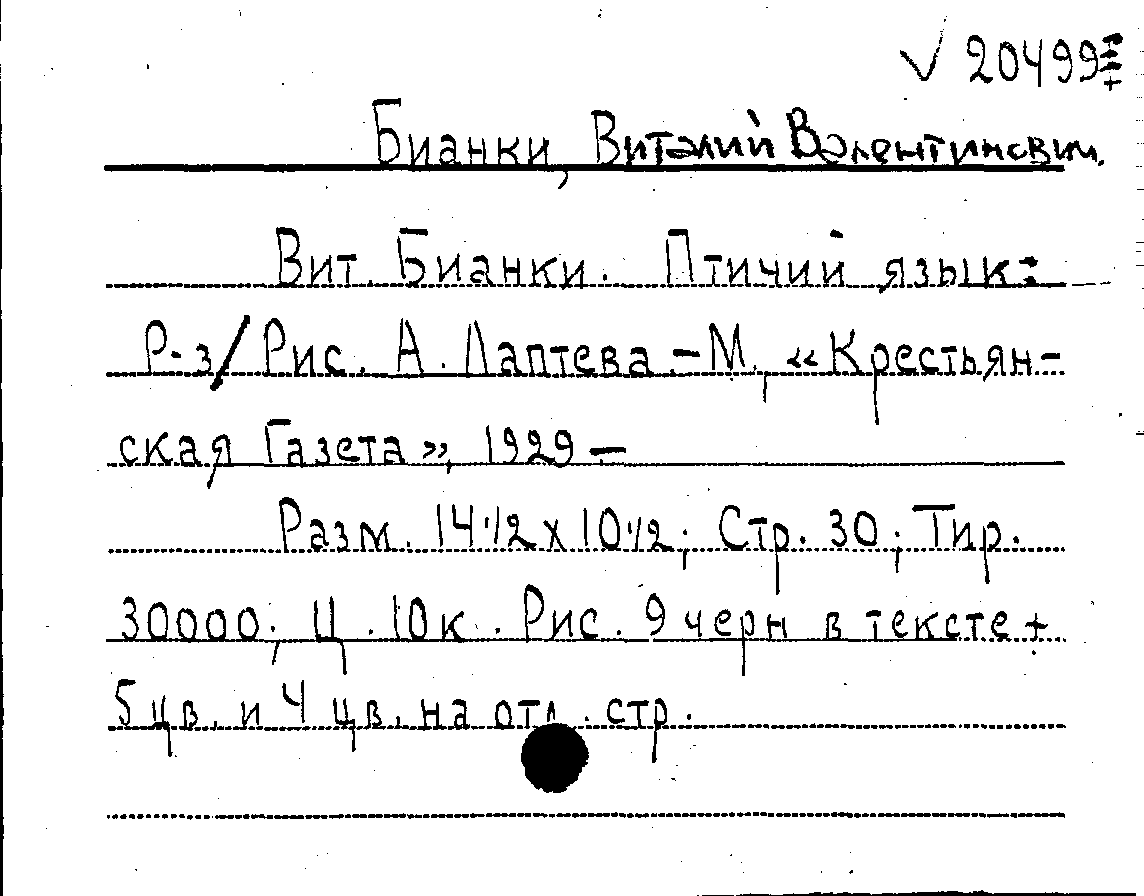 √ 20499
Бианки, Виталий Валентинович.
Вит. Бианки. Птичий язык:
Р-з/ Рис. А. Лаптева – М., «Крестьян-
ская Газета», 1929 –
Разм. 14 1/2 х 10 1/2; Стр. 30; Тир.
30000; Ц. 10 к. Рис. 9 черн в тексте +
5 цв. и 4 цв. на отд. стр.